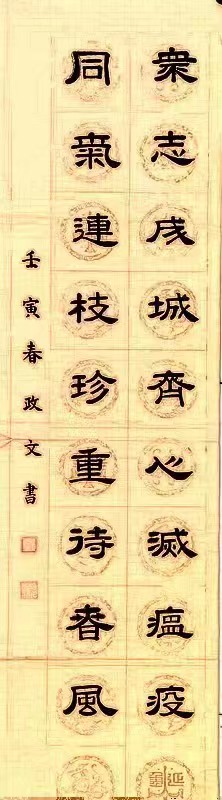 衆志成城齊心滅瘟疫
同氣連枝珍重待春風
壬寅春政文書